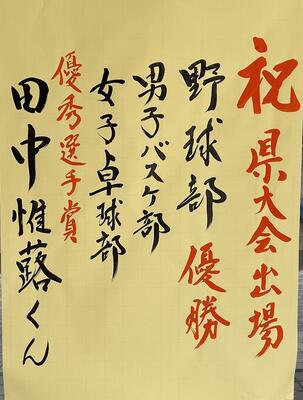 祝 県大会出場
野球部 優勝
男子バスケ部
女子卓球部
優秀選手賞
田中惟蕗くん